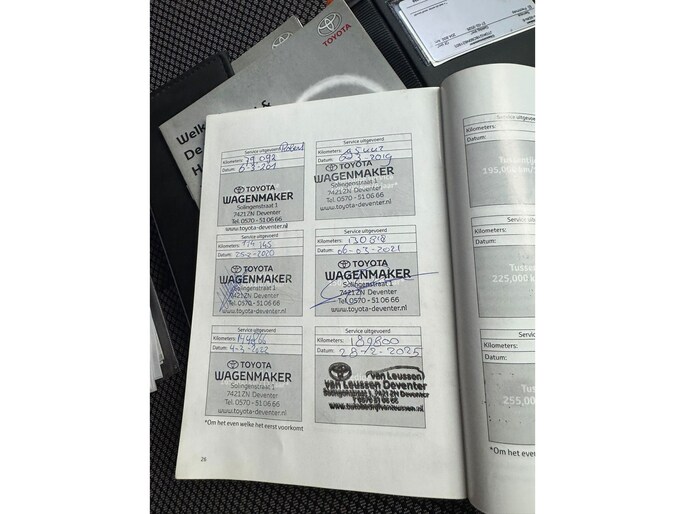 TOYOTA
Welk
De
H
Service uitgevoerd Robert
Kilometers: 79.092
Datum:
TOYOTA
WAGENMAKER
Solingenstraat 1
7421 ZN Deventer
Tel. 0570 - 51 06 66
www.toyota-deventer.nl
Service uitgevoerd
Kilometers:
Datum: 3-2019
TOYOTA
WAGENMAKER
Solingenstraat 1
7421 ZN Deventer
Tel. 0570 - 51 06 66
www.toyota-deventer.nl
Service uitgevoerd
Kilometers: 114 145
Datum: 25-2-2020
TOYOTA
WAGENMAKER
Solingenstraat 1
7421 ZN Deventer
Tel. 0570 - 51 06 66
www.toyota-deventer.nl
Service uitgevoerd
Kilometers: 130848
Datum: 06-03-2021
TOYOTA
WAGENMAKER
Solingenstraat 1
7421 ZN Deventer
Tel. 0570 - 51 06 66
www.toyota-deventer.nl
Service uitgevoerd
Kilometers:
Datum: 4-3-2022
WAGENMAKER
Solingenstraat 1
7421 ZN Deventer
Tel. 0570 - 51 06 66
www.toyota-deventer.nl
Service uitgevoerd
Kilometers: 189800
Datum: 28-2-2025
van Leussen
van Leussen Deventer
Solingenstraat 1, 7421 ZN Deventer
T 0570 51 06 66
www.autobedrijfvanleussen.nl
*Om het even welke het eerst voorkomt
26
Servic
Kilometers:
Datum:
Tussentij
195,000 km/
Servic
Kilometers:
Datum:
Tusse
225,000 k
Servic
Kilometers:
Datum:
Tus
255,00
*Om het even